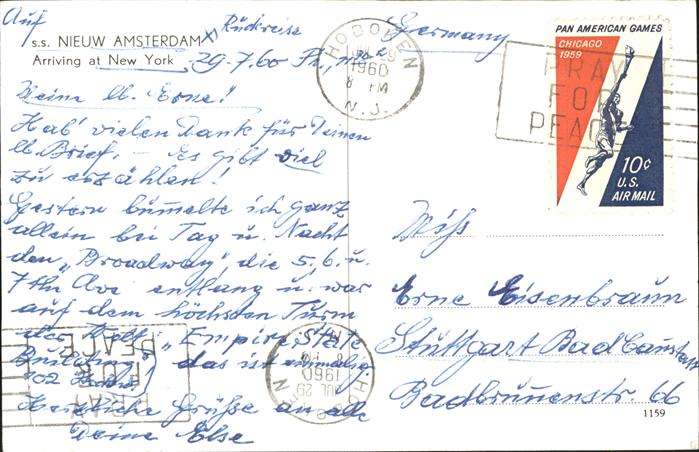 Auf
s.s. NIEUW AMSTERDAM x) Rückreise
Arriving at New York 29.7.60
Meine lb. Erne!
Hab' vielen Dank für Deinen
lb. Brief. — Es gibt viel
zu erzählen!
Gestern bummelte ich ganz
allein bei Tag u. Nacht
den „Broadway", die 5, 6. u.
7th Ave entlang u. war
auf dem höchsten Turm
der Welt, „Empire State
Building" das ist einmalig
102
Herzliche Grüße an alle
Deine Else
Germany
HOBOKEN
JUL 29
8 PM
1960
N.J.
PRAY
FOR
PEACE
PAN AMERICAN GAMES
CHICAGO
1959
10¢
U.S.
AIR MAIL
Miss
Erne Eisenbraun
Stuttgart Bad Cannstatt
Badbrunnenstr. 66
1159
HOBOKEN
JUL 29
8 PM
1960
N.J.
PRAY
FOR
PEACE